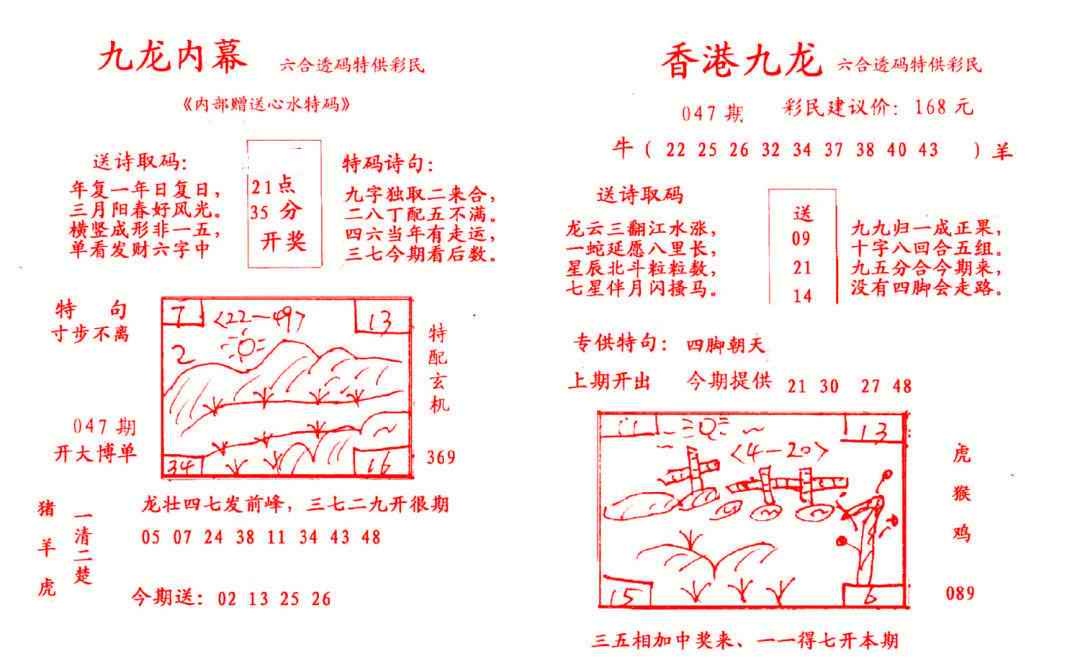 九龙内幕 六合透码特供彩民
《内部赠送心水特码》
送诗取码：
年复一年日复日，
三月阳春好风光。
横竖成形非一五，
单看发财六字中
21点
35分
开奖
特码诗句：
九字独取二来合，
二八丁配五不满。
四六当年有走运，
三七今期看后数。
特 句
寸步不离
047期
开大博单
7
〈22—49〉
13
2
34
16
特配玄机
369
猪羊虎
一清二楚
龙壮四七发前峰，三七二九开很期
05 07 24 38 11 34 43 48
今期送：02 13 25 26
香港九龙 六合透码特供彩民
047期 彩民建议价：168元
牛（22 25 26 32 34 37 38 40 43 ）羊
送诗取码
龙云三翻江水涨，
一蛇延愿八里长，
星辰北斗粒粒数，
七星伴月闪搔马。
送
09
21
14
九九归一成正果，
十字八回合五组。
九五分合今期来，
没有四脚会走路。
专供特句：四脚朝天
上期开出 今期提供 21 30 27 48
〈4—20〉
13
15
6
虎
猴
鸡
089
三五相加中奖来、一一得七开本期